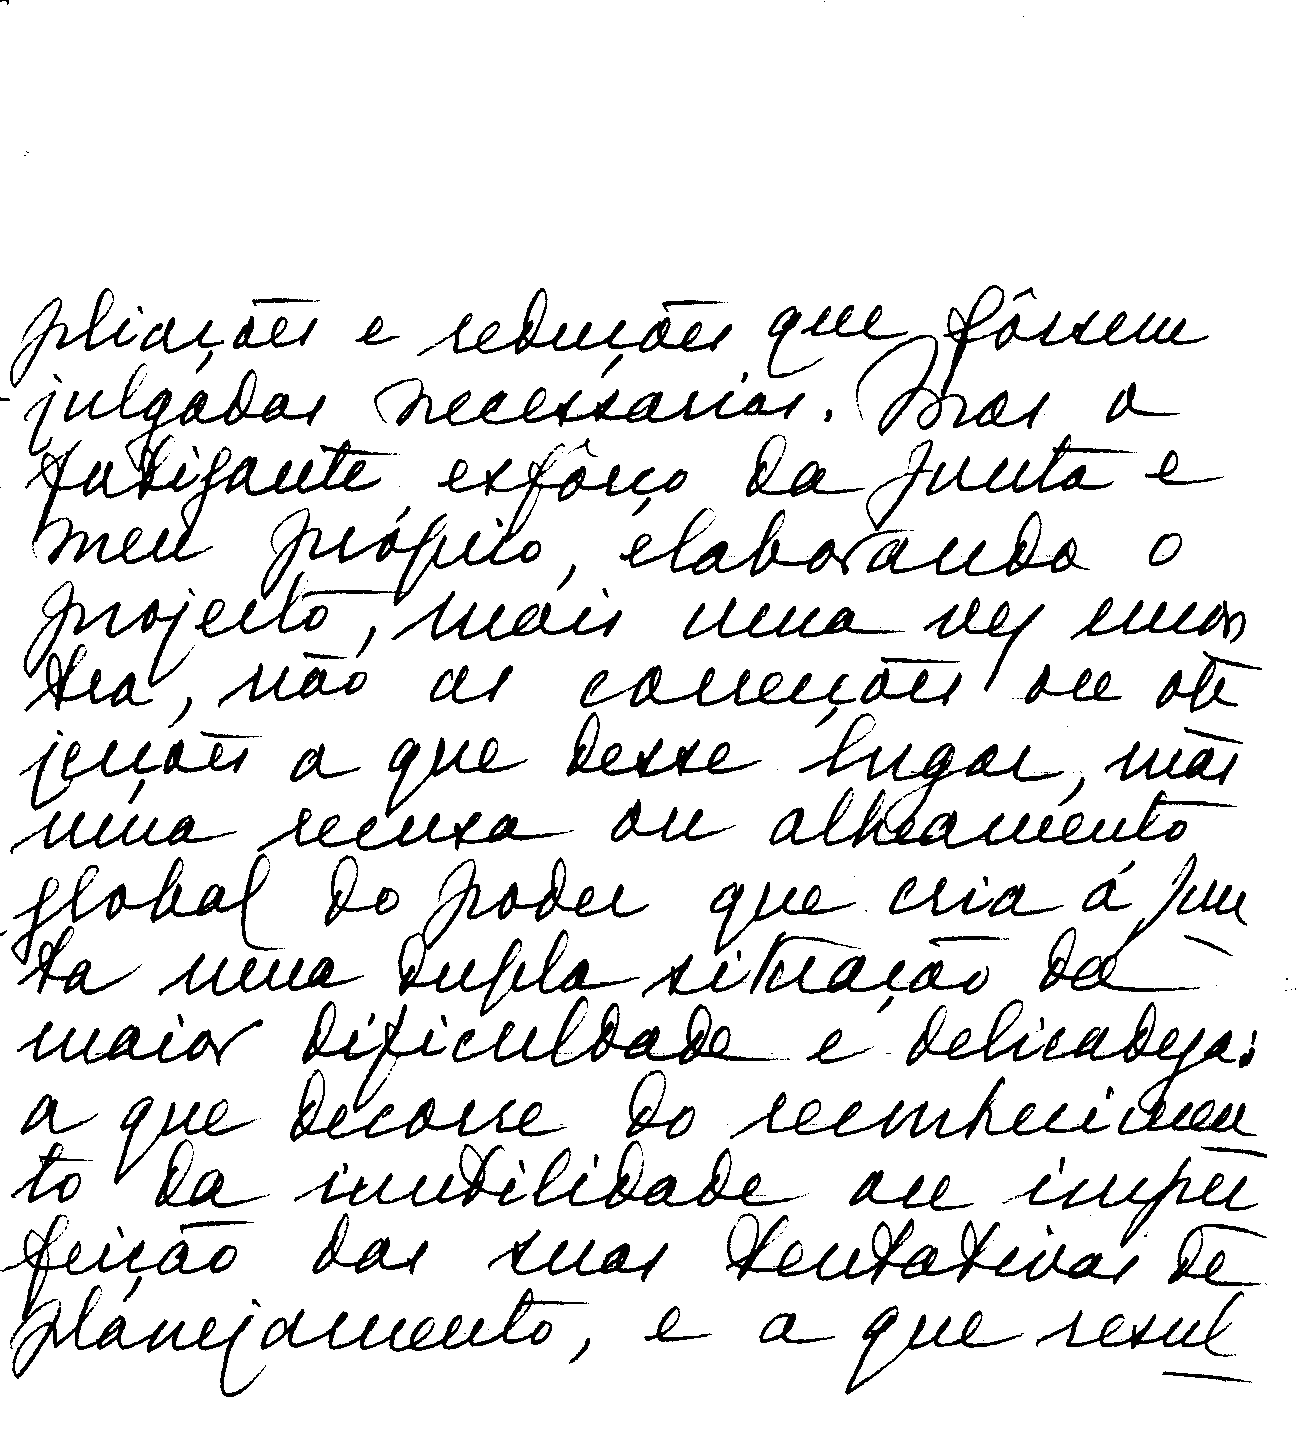 pliações e reduções que fôssem
julgadas necessárias. Mas o
fatigante esfôrço da Junta e
meu próprio, elaborando o
projeto, mais uma vez encon
tra, não as correções ou ob
jeções a que desse lugar, mas
uma recusa ou alheamento
global do poder que cria á Jun
ta uma dupla situação da
maior dificuldade e delicadeza:
a que decorre do reconhecimen
to da inutilidade ou imper
feição das suas tentativas de
planejamento, e a que resul